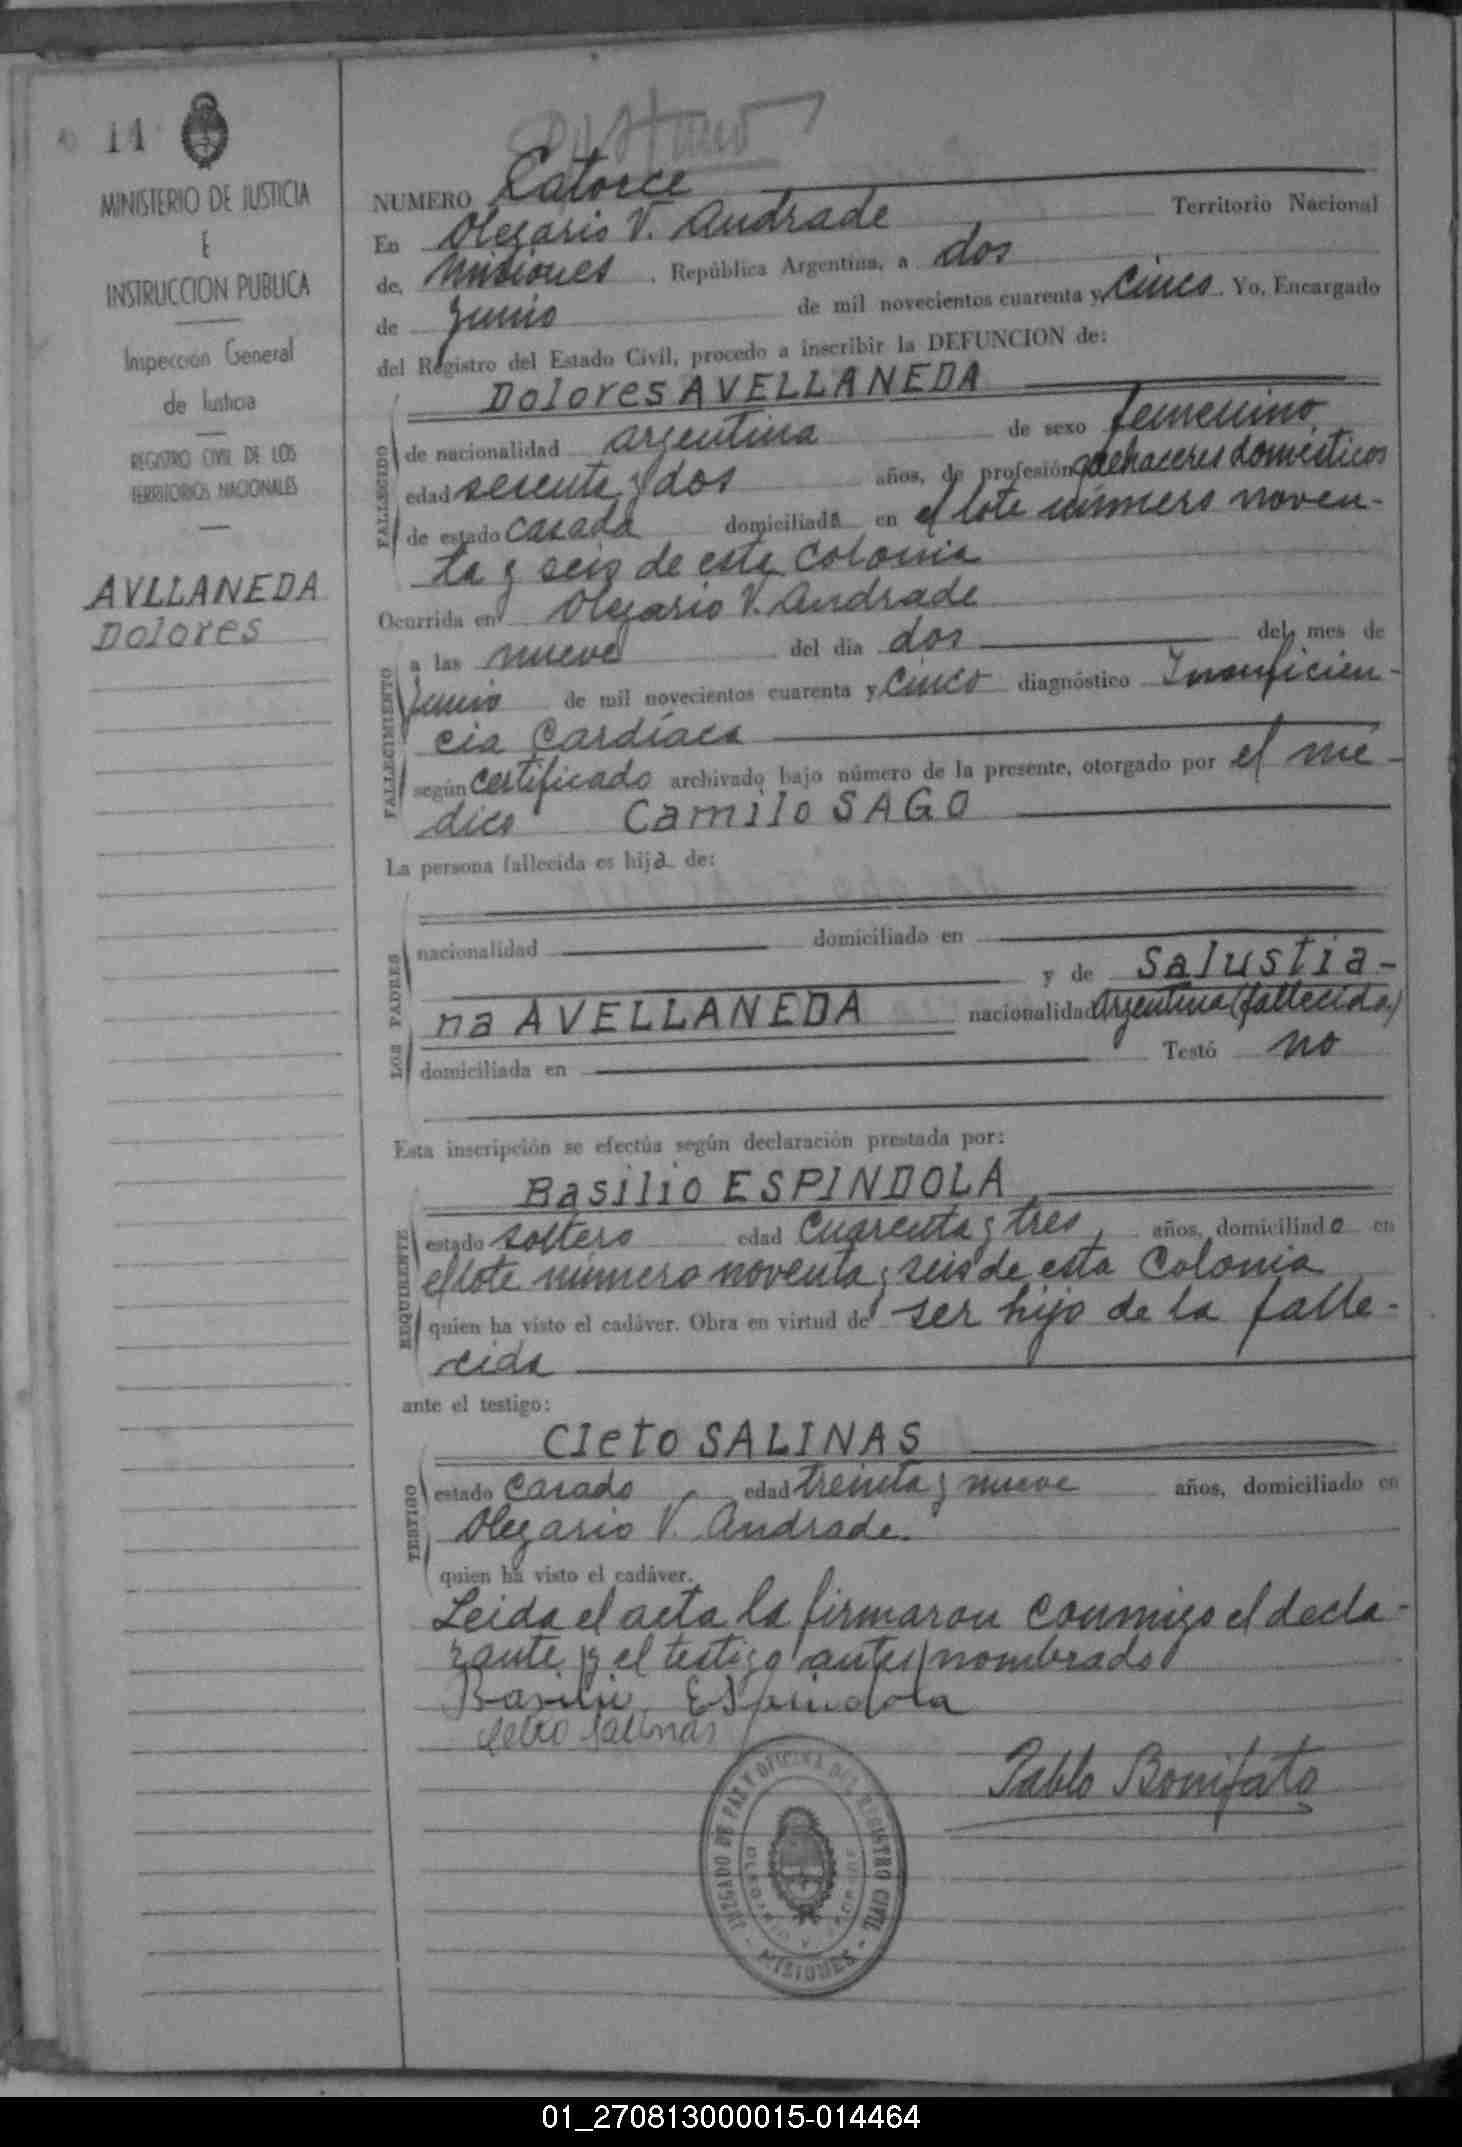 11
MINISTERIO DE JUSTICIA
E
INSTRUCCION PUBLICA
Inspección General
de Justicia
REGISTRO CIVIL DE LOS
TERRITORIOS NACIONALES
AVLLANEDA
Dolores
NUMERO Catorce
En Olegario V. Andrade Territorio Nacional
de, Misiones, República Argentina, a dos
de Junio de mil novecientos cuarenta y cinco. Yo, Encargado
del Registro del Estado Civil, procedo a inscribir la DEFUNCION de:
Dolores AVELLANEDA
FALLECIDO
de nacionalidad argentina de sexo femenino,
edad sesenta y dos años, de profesión quehaceres domésticos
de estado casada domiciliada en el lote número noven-
ta y seis de esta Colonia
Ocurrida en Olegario V. Andrade
FALLECIMIENTO
a las nueve del día dos del mes de
Junio de mil novecientos cuarenta y cinco diagnóstico Insuficien-
cia Cardíaca
según certificado archivado bajo número de la presente, otorgado por el mé-
dico Camilo SAGO
La persona fallecida es hija de:
LOS PADRES
nacionalidad domiciliado en
y de Salustia-
na AVELLANEDA nacionalidad Argentina (fallecida)
domiciliada en Testó no
Esta inscripción se efectúa según declaración prestada por:
Basilio ESPINDOLA
REQUIRENTE
estado soltero edad Cuarenta y tres, años, domiciliado en
el lote número noventa y seis de esta Colonia
quien ha visto el cadáver. Obra en virtud de ser hijo de la falle-
cida
ante el testigo:
Cleto SALINAS
TESTIGO
estado Casado edad treinta y nueve años, domiciliado en
Olegario V. Andrade.
quien ha visto el cadáver.
Leida el acta la firmaron conmigo el decla-
rante y el testigo antes nombrado
Basilio Espindola
Cleto Salinas
Pablo Bonifato
JUZGADO DE PAZ Y OFICINA DEL REGISTRO CIVIL
- MISIONES -
01_270813000015-014464